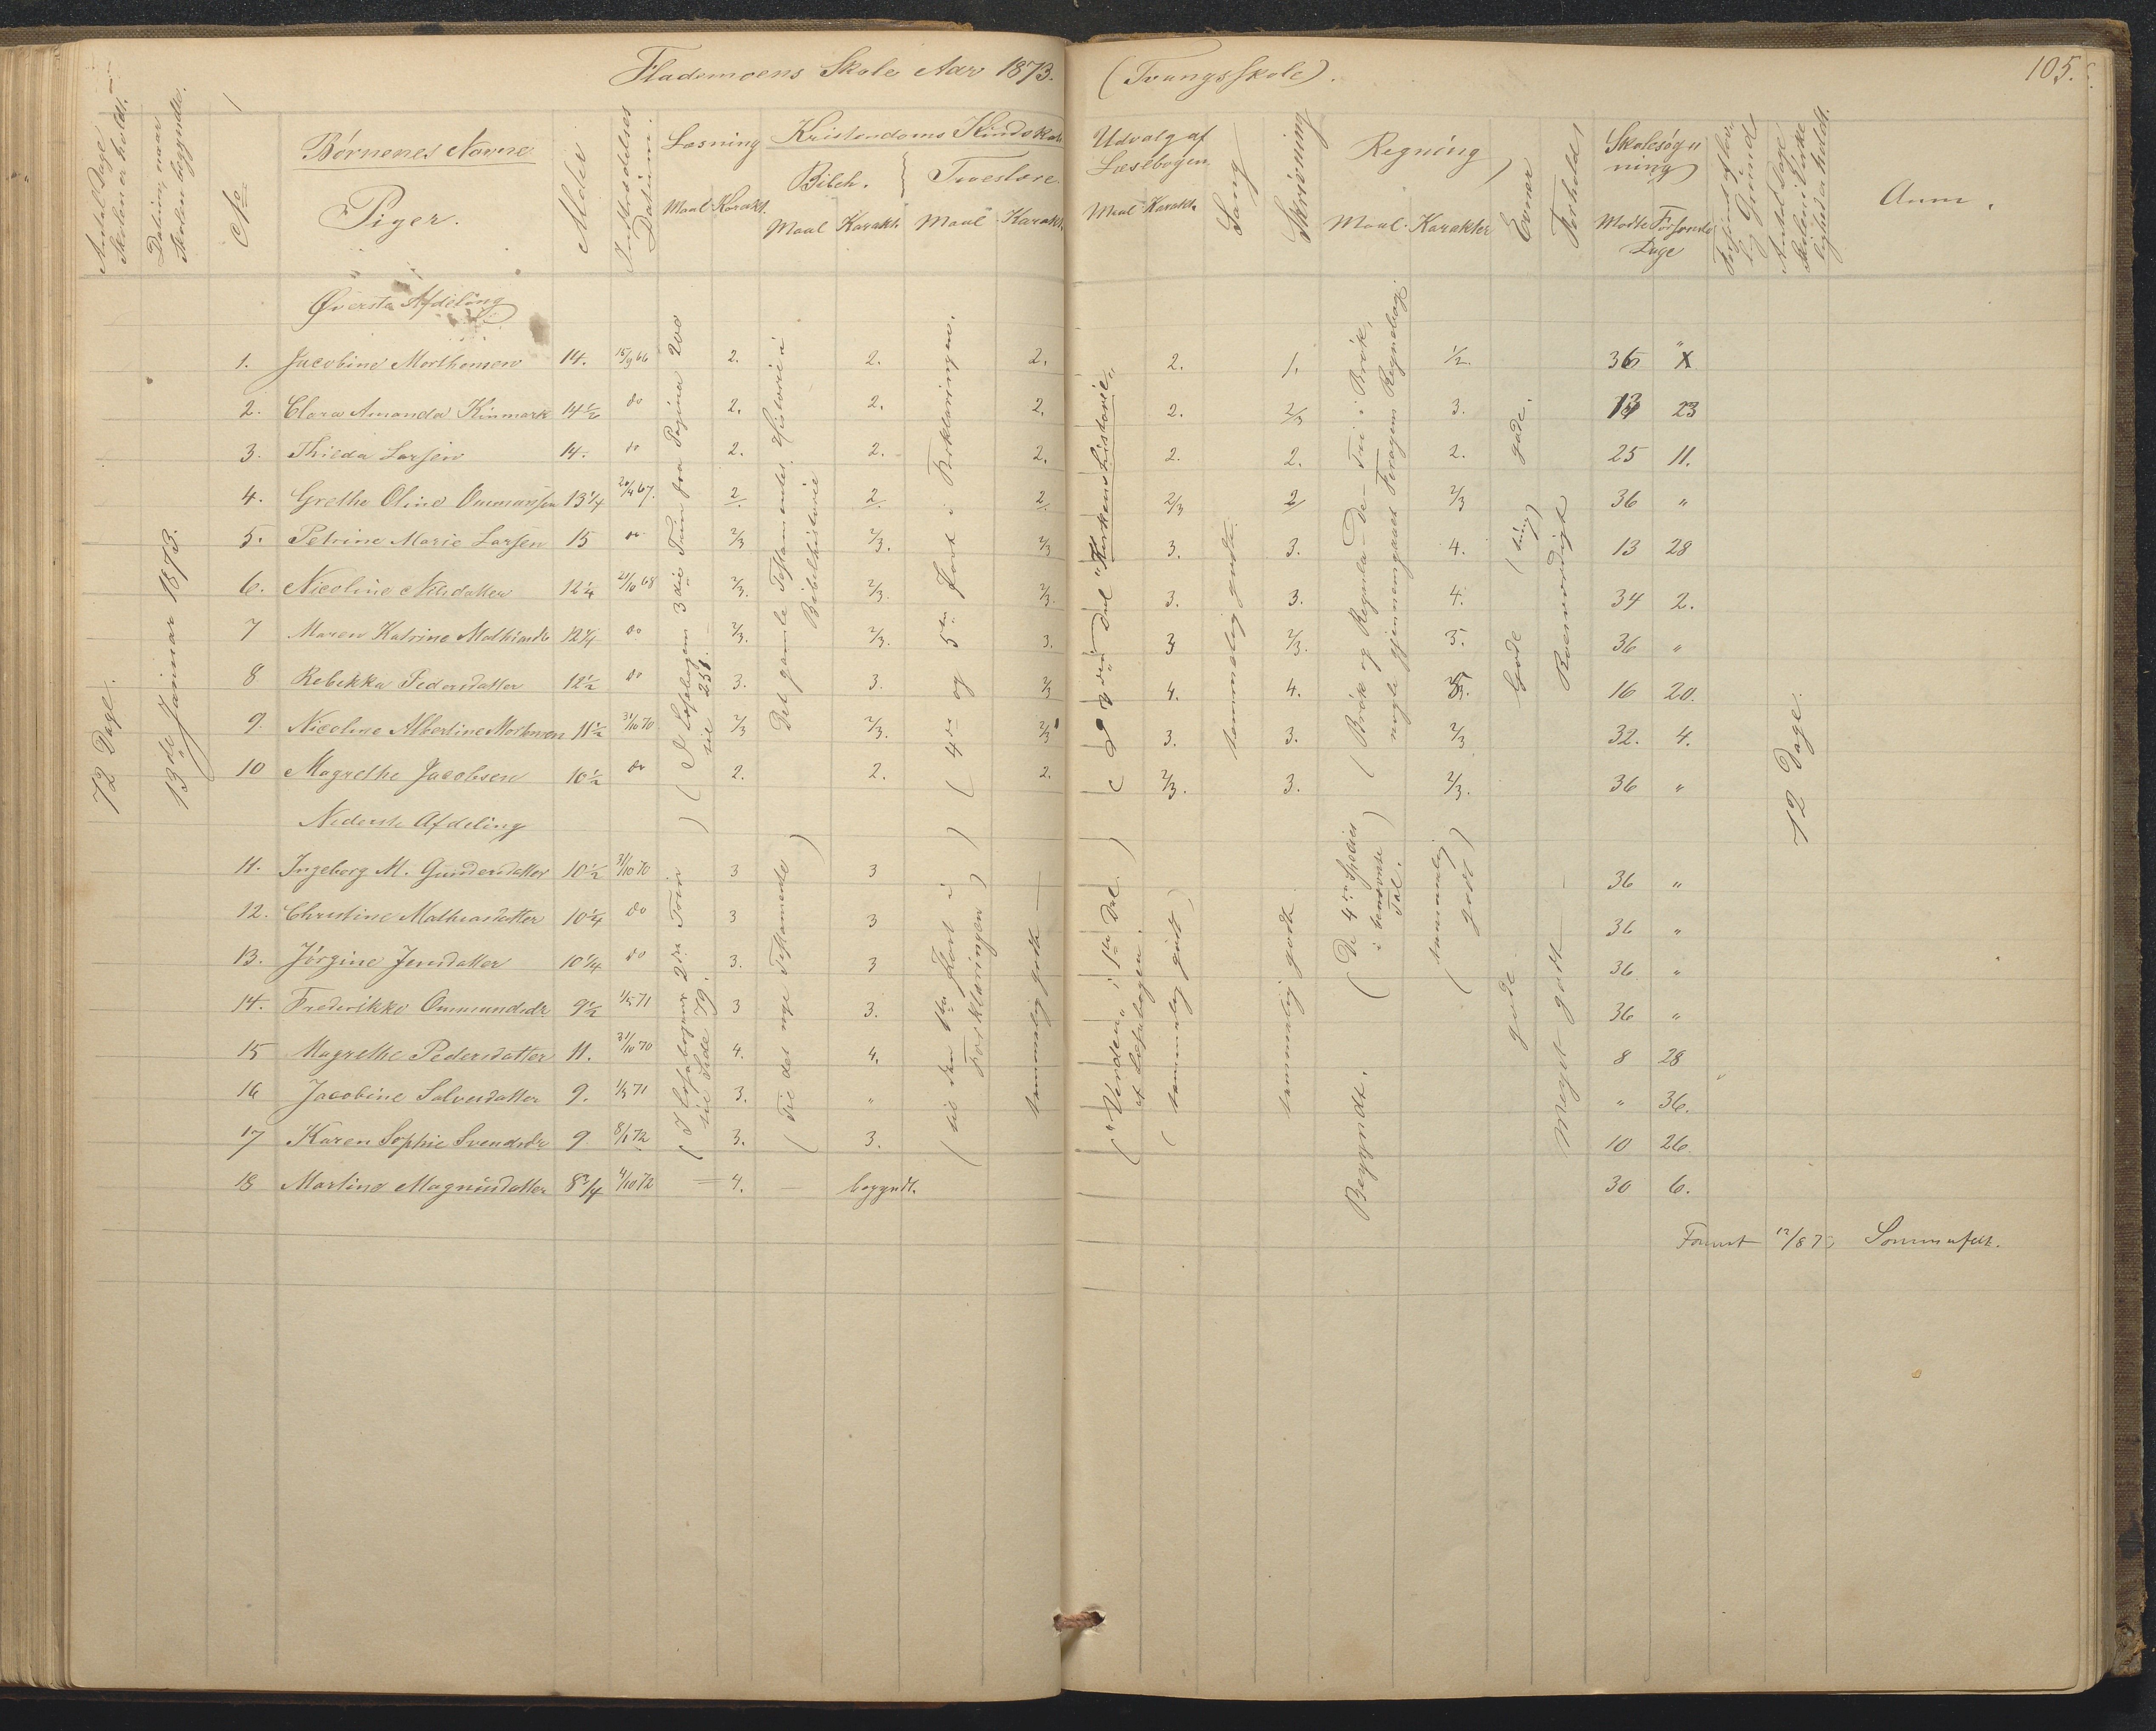 Flademoens Skole Aar 1873. (Tvangsskole). 105.
Antal Dage Skolen er holdt.
Datum, naar Skolen begyndte.
No
Børnenes Navne
Piger.
Alder
Indtrædelses Datum.
Læsning
Maal Karakt.
Kristendoms Kundskab
Bibelh.
Maal Karakt.
Troeslære.
Maal Karakt.
Udvalg af Læsebogen
Maal Karakt.
Sang
Skrivning
Regning
Maal. Karakter
Evner
Forhold
Skolesøgning
Mødte Forsømte
Dage
Antal Dage Skolen i Virkelighed er holdt.
Anm.
72 Dage.
13de Januar 1873.
Øverste Afdeling
1. Jacobine Morthensen 14. 15/9 66 2. 2. 2. 2. 1. 1/2. 36 "
2. Clara Amanda Kinmark 14 1/2 do 2. 2. 2. 2. 2/3 3. 13 23
3. Thilda Larsen 14. do 2. 2. 2. 2. 2. 2. 25 11.
4. Grethe Oline Ommansen 13 1/4 20/4 67. 2 2 2 2/3 2 2/3 36 "
5. Petrine Marie Larsen 15 do 2/3 2/3. 2/3 3. 3. 4. 13 28
6. Nicoline Nilsdatter 12 1/4 21/10 68 2/3. 2/3. 2/3. 3. 3. 4. 34 2.
7 Maren Katrine Mathiasdr 12 1/4 do 2/3. 2/3. 3. 3 2/3. 3. 36 "
8 Rebekka Pedersdatter 12 1/2 do 3. 3. 2/3 4. 4. 16 20.
9. Nicoline Albertine Morthensen 11 1/2 31/10 70 2/3 2/3. 2/3 3. 3. 2/3 32. 4.
10 Magrethe Jacobsen 10 1/2 do 2. 2. 2. 2/3. 3. 2/3. 36 "
(I Læsebogen 3die Trin fra Pagina 200 til 251.
Det gamle Testamentes Historie i Bibelhistorie
(4de og 5te Part i Forklaringen.
(I 2den Del "Kirkens Historie"
temmelig godt.
(Brøk og Regula-De-Tri i Brøk, nogle gjennemgaaet Foragens Regnebog.
Gode
gode.
Roesværdigt
12 Dage.
Nederste Afdeling
11. Ingeborg M. Gundersdatter 10 1/2 31/10 70 3 3 36 "
12. Christine Mathiasdatter 10 1/4 do 3 3 36 "
13. Jørgine Jensdatter 10 1/4 do 3. 3 36 "
14. Frederikke Ommundsdr 9 1/2 1/5 71 3 3. 36 "
15 Magrethe Pedersdatter 11. 31/10 70 4. 4. 8 28
16 Jacobine Salvesdatter 9. 1/5 71 3. " " 36.
17 Karen Sophie Svendsdr 9 8/1 72 3. 3. 10 26
18 Martine Magnusdatter 8 3/4 4/10 72 — 4. — begyndt. 30 6.
(I Læsebogens 2det Trin til Side 79.)
(Til det nye Testamente)
(til den 4de Part i Forklaringen)
temmelig godt
("Verden" i 1ste Del af Læsebogen.)
(temmelig godt)
temmelig godt
(De 4re Species i benævnte Tal.)
Begyndt.
(temmelig godt)
gode
Meget godt
12/8 73 Sommerfelt.